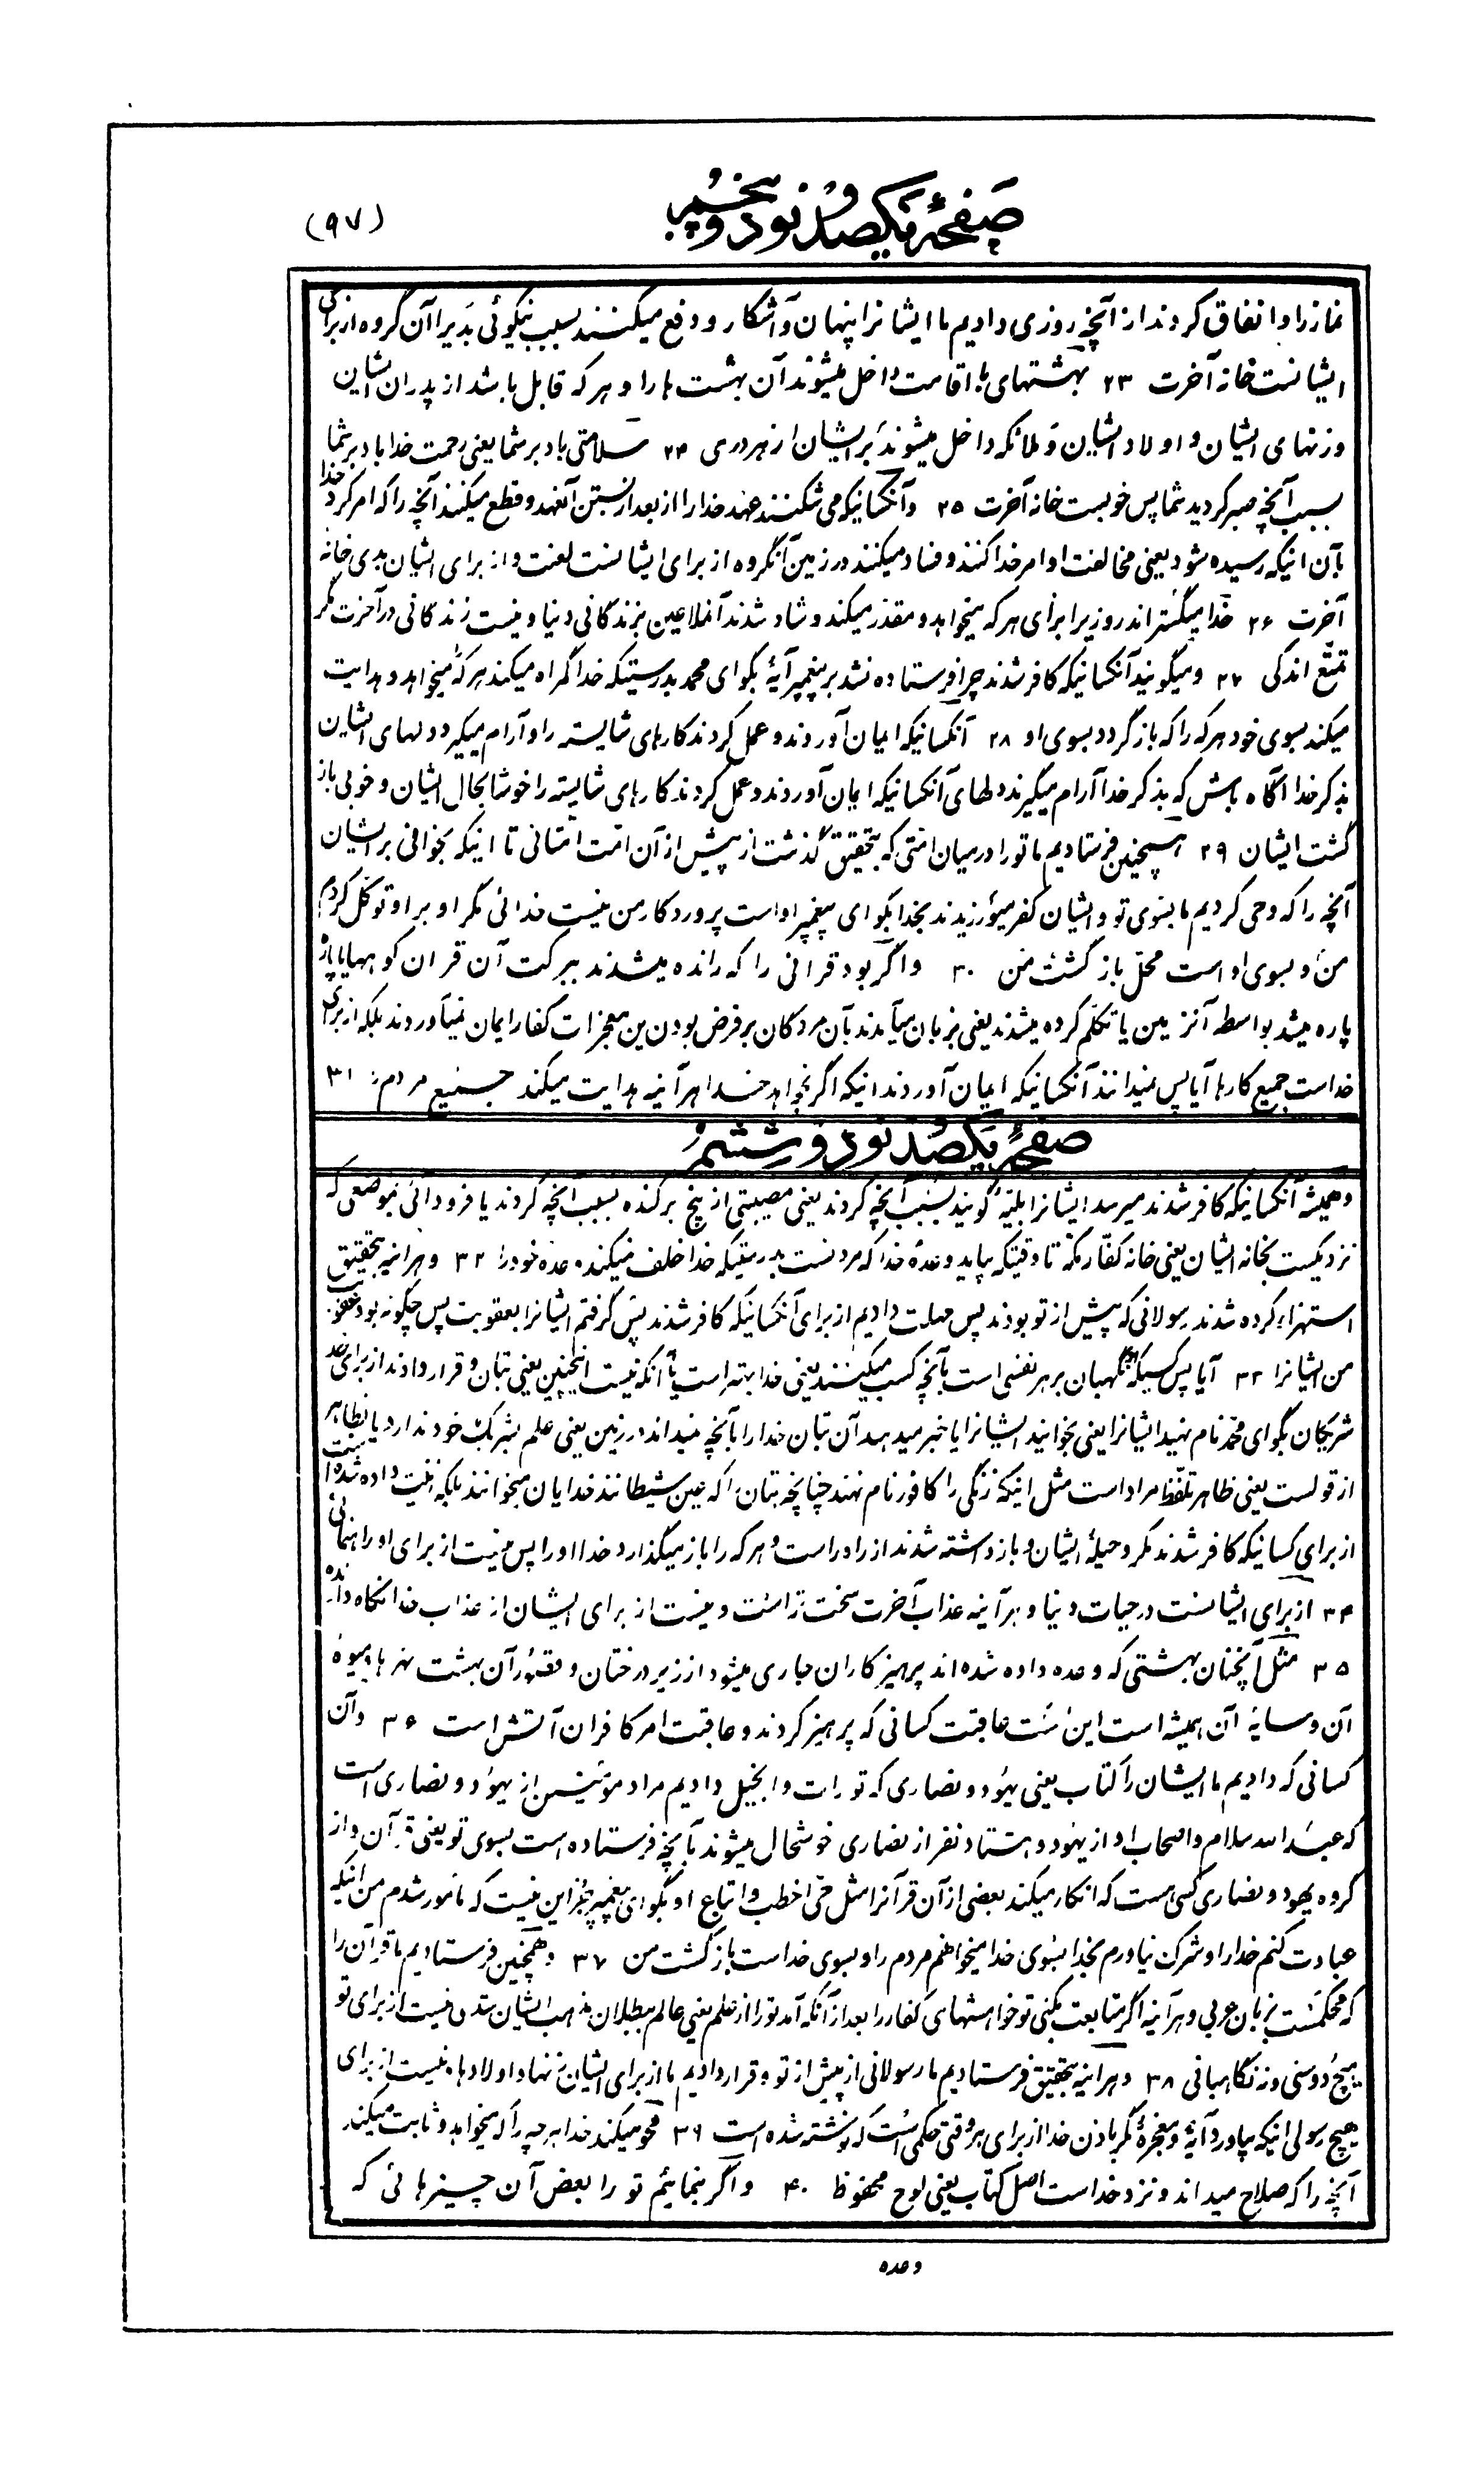 (۹۷)
صفحۀ یکصد و نود و پنجم
نماز را و انفاق کردند از آنچه روزی دادیم ما ایشانرا پنهان و آشکار و دفع میکنند بسبب نیکوئی بدیرا آن گروه از برای
ایشانست خانه آخرت ۲۳ بهشتهای با اقامت داخل میشوند آن بهشت ها را و هر که قابل باشد از پدران ایشان
و زنهای ایشان و اولاد ایشان و ملائکه داخل میشوند بر ایشان از هر دری ۲۴ سلامتی باد بر شما یعنی رحمت خدا باد بر شما
بسبب آنچه صبر کردید شما پس خوبست خانه آخرت ۲۵ و آنکسانیکه می شکنند عهد خدا را از بعد از بستن آنعهد و قطع میکنند آنچه را که امر کرد خدا
بآن اینکه رسیده شود یعنی مخالفت اوامر خدا کنند و فساد میکنند در زمین آنگروه از برای ایشانست لعنت و از برای ایشان بدی خانه
آخرت ۲۶ خدا میگستراند روزیرا برای هر که میخواهد و مقدر میکند و شاد شدند آنملاعین بزندگانی دنیا و نیست زندگانی در آخرت مگر
تمتّع اندکی ۲۷ و میگویند آنکسانیکه کافر شدند چرا فرستاده نشد بر پیغمبر آیۀ بگو ای محمد بدرستیکه خدا گمراه میکند هر که را میخواهد و هدایت
میکند بسوی خود هر که را که باز گردد بسوی او ۲۸ آنکسانیکه ایمان آوردند و عمل کردند کارهای شایسته را و آرام میگیرد دلهای ایشان
بذکر خدا آگاه باش که بذکر خدا آرام میگیرند دلهای آنکسانیکه ایمان آوردند و عمل کردند کارهای شایسته را خوشا بحال ایشان و خوبی باز
گشت ایشان ۲۹ همچنین فرستادیم ما تو را در میان امّتی که بتحقیق گذشت از پیش از آن امّت امّتانی تا اینکه بخوانی بر ایشان
آنچه را که وحی کردیم ما بسوی تو و ایشان کفر میورزیدند بخدا بگو ای پیغمبر او است پروردگار من نیست خدائی مگر او بر او توکّل کردم
من و بسوی او است محلّ بازگشت من ۳۰ و اگر بود قرانی را که رانده میشدند ببرکت آن قران کوهها یا پاره
پاره میشد بواسطه آن زمین یا تکلّم کرده میشدند یعنی بزبان میآمدند بآن مردگان بر فرض بودن این معجزات کفار ایمان نمیآوردند بلکه از برای
خداست جمیع کارها آیا پس نمیدانند آنکسانیکه ایمان آوردند اینکه اگر بخواهد خدا هر آینه هدایت میکند جمیع مردم را ۳۱
صفحۀ یکصد و نود و ششم
و همیشه آنکسانیکه کافر شدند میرسد ایشانرا بلیّۀ کوبنده بسبب آنچه کردند یعنی مصیبتی از بیخ برکنده بسبب آنچه کردند یا فرود آئی بموضعی که
نزدیکست بخانه ایشان یعنی خانه کفّار مکّه تا وقتیکه بیاید وعدۀ خدا که مردنست بدرستیکه خدا خلف نمیکند وعده خود را ۳۲ و هر اینه بتحقیق
استهزاء کرده شدند رسولانی که پیش از تو بودند پس مهلت دادیم از برای آنکسانیکه کافر شدند پس گرفتم ایشانرا بعقوبت پس چگونه بود عقوبت
من ایشانرا ۳۳ آیا پس کسیکه او نگهبان بر هر نفسی است بآنچه کسب میکنند یعنی خدا بهتر است یا آنکه نیست اینچنین یعنی بتان و قرار دادند از برای خدا
شریکان بگو ای محمد نام نهید ایشانرا یعنی بخوانید ایشانرا یا خبر میدهید آن بتان خدا را بآنچه نمیداند در زمین یعنی علم بشریک خود ندارد یا بظاهر
از قولست یعنی ظاهر تلفّظ مراد است مثل اینکه زنگی را کافور نام نهند چنانچه بتان را که عین شیطانند خدایان میخوانند بلکه زینت داده شده است
از برای کسانیکه کافر شدند مکر و حیلۀ ایشان و باز داشته شدند از راه راست و هر که را باز میگذارد خدا او را پس نیست از برای او راهنمائی
۳۴ از برای ایشانست در حیات دنیا و هر آینه عذاب آخرت سخت تر است و نیست از برای ایشان از عذاب خدا نگاه دارنده
۳۵ مثل آنچنان بهشتی که وعده داده شده اند پرهیزکاران جاری میشود از زیر درختان و قصور آن بهشت نهرها میوه
آن و سایه آن همیشه است این است عاقبت کسانی که پرهیز کردند و عاقبت امر کافران آتش است ۳۶ و آن
کسانی که دادیم ما ایشان را کتاب یعنی یهود و نصاری که تورات و انجیل دادیم مراد مؤمنین از یهود و نصاری است
که عبدالله سلام و اصحاب او از یهود و هشتاد نفر از نصاری خوشحال میشوند بآنچه فرستاده است بسوی تو یعنی قرآن و از
گروه یهود و نصاری کسی هست که انکار میکند بعضی از آن قرآنرا مثل حیّ اخطب و اتباع او بگو ای پیغمبر بجز این نیست که مأمور شدم من اینکه
عبادت کنم خدا را و شرک نیاورم بخدا بسوی خدا میخواهم مردم را و بسوی خداست بازگشت من ۳۷ و همچنین فرستادیم ما قرآن را
که محکمست بزبان عربی و هر آینه اگر متابعت بکنی تو خواهشهای کفار را بعد از آنکه آمد تو را از علم یعنی عالم ببطلان مذهب ایشان شدی نیست از برای تو
هیچ دوستی و نه نگاهبانی ۳۸ و هر اینه بتحقیق فرستادیم ما رسولانی از پیش از تو و قرار دادیم ما از برای ایشان زنها و اولادها نیست از برای
هیچ رسولی اینکه بیاورد آیۀ و معجزۀ مگر باذن خدا از برای هر وقتی حکمی است که نوشته شده است ۳۹ محو میکند خدا هر چه را که میخواهد و ثابت میکند
آنچه را که صلاح میداند و نزد خداست اصل کتاب یعنی لوح محفوظ ۴۰ و اگر بنمایئم تو را بعض آن چیزهائی که
وعده